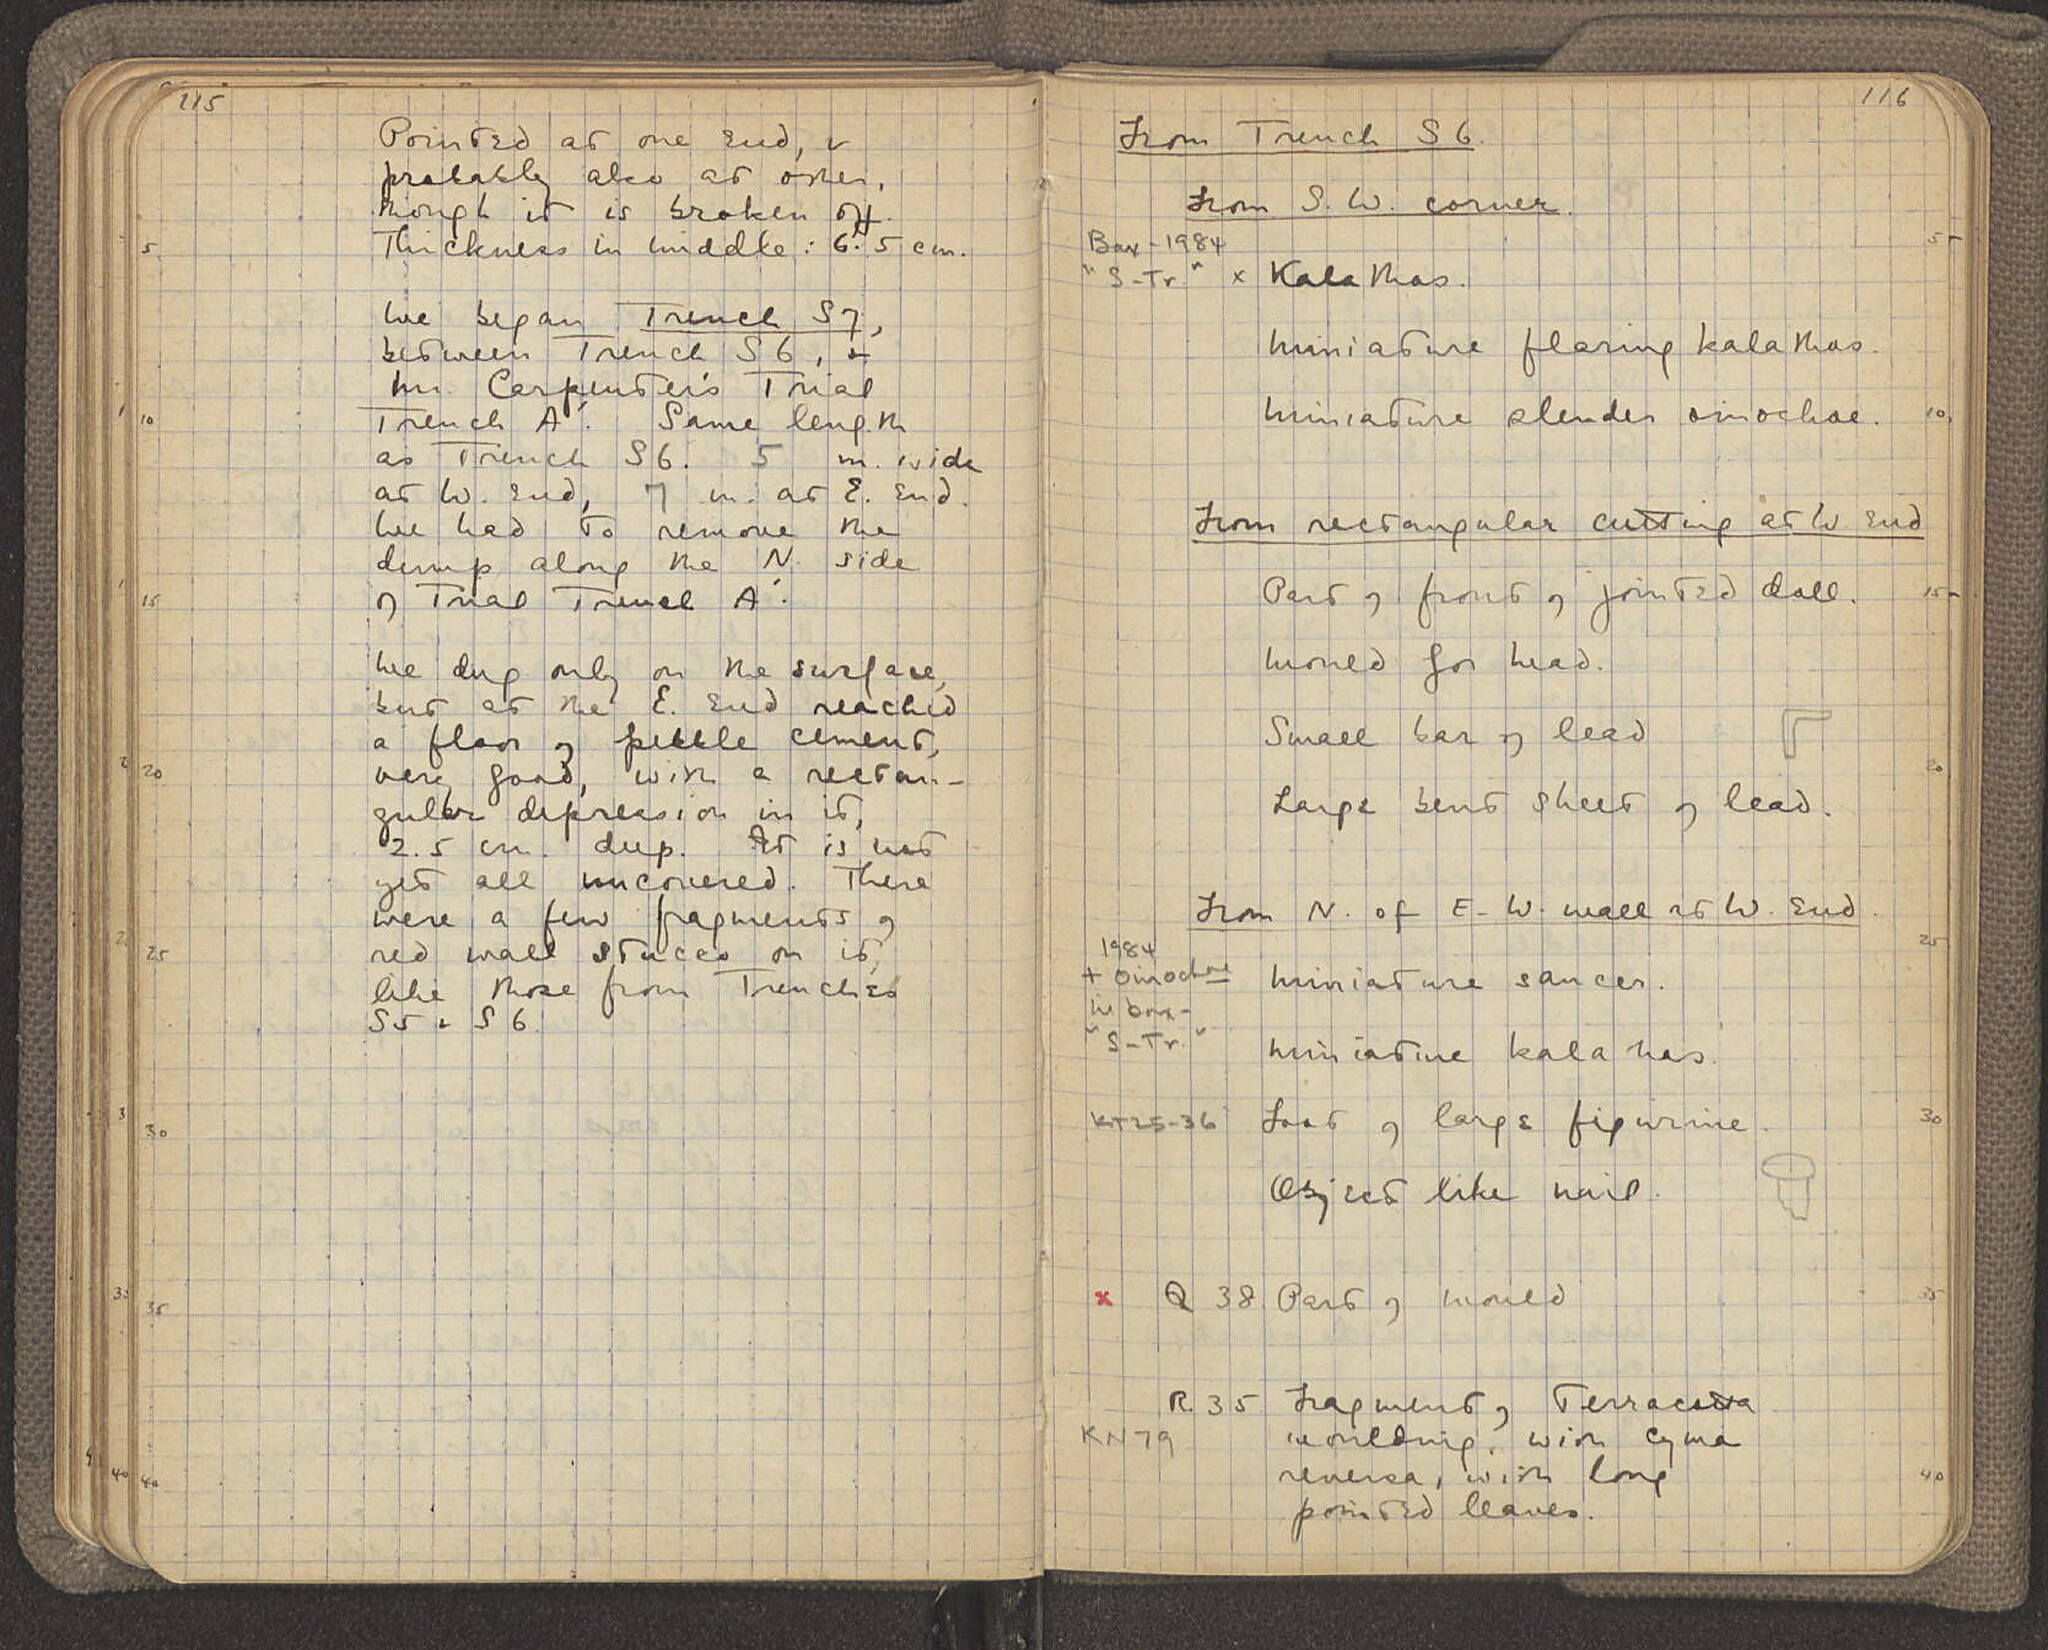 115
Pointed at one end, &
probably also at other,
though it is broken off.
Thickness in middle: 6.5 cm.
5
We began Trench S7,
between Trench S6, &
Mr. Carpenter's Trial
Trench A'. Same length
10
as Trench S6. 5 m. wide
at W. End, 7 m. at E. End.
We had to remove the
dump along the N. side
of Trial Trench A'.
15
We dug only on the surface,
but at the E. End reached
a floor of pebble cement,
very good, with a rectan-
20
gular depression in it,
2.5 cm. deep. It is not
yet all uncovered. There
were a few fragments of
red wall stucco on it,
25
like those from Trenches
S5 & S6.
30
35
40
116
From Trench S6.
From S.W. corner.
Box-1984
5
"S-Tr." x Kalathos.
Miniature flaring kalathos.
Miniature slender oinochoe.
10
From rectangular cutting at W End
Part of front of jointed doll.
15
Mould for head.
Small bar of lead
20
Large bent sheet of lead.
From N. of E-W. wall at W. End.
25
1984
+ oinochoe
in box-
"S-Tr."
Miniature saucer.
Miniature kalathos.
KT25-36 Foot of large figurine.
30
Object like nail.
x Q 38 Part of mould
35
R. 35 Fragment of Terracotta
KN79 moulding, with cyma
reversa, with long
40
pointed leaves.